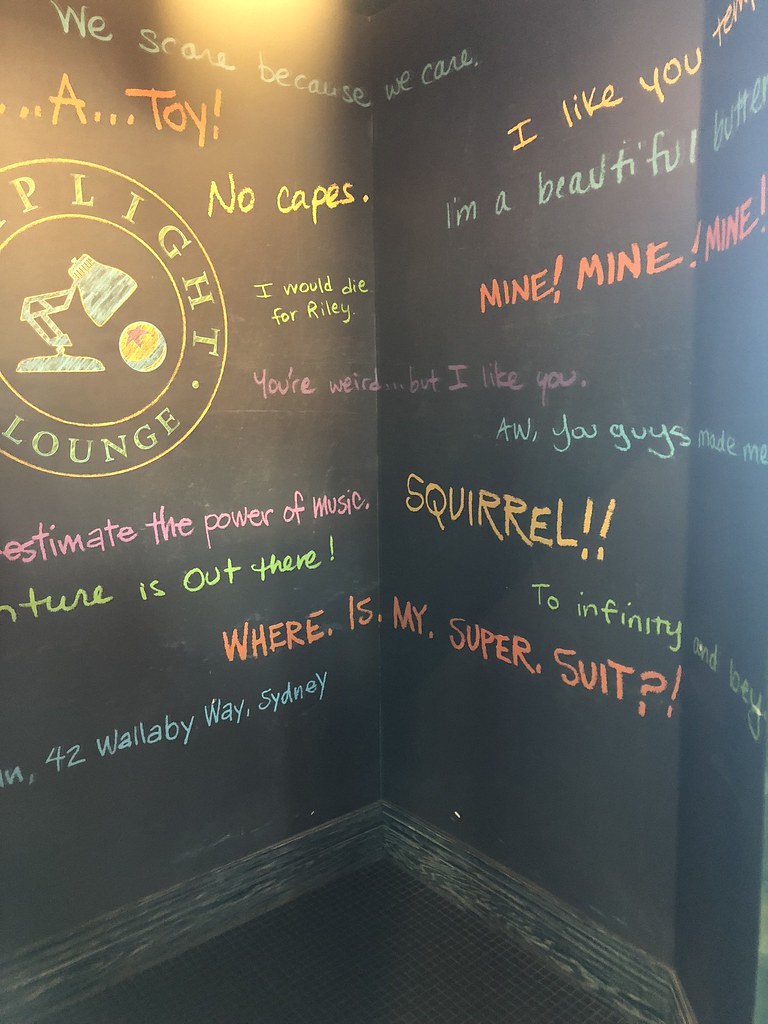 We scare because we care.
...A...TOY!
I like you
No capes.
I'm a beautiful
PLIGHT
LOUNGE
MINE! MINE! MINE!
I would die
for Riley.
You're weird...but I like you.
AW, you guys made me
SQUIRREL!!
estimate the power of music.
nture is out there!
To infinity and bey
WHERE. IS. MY. SUPER. SUIT?!
42 Wallaby Way, Sydney